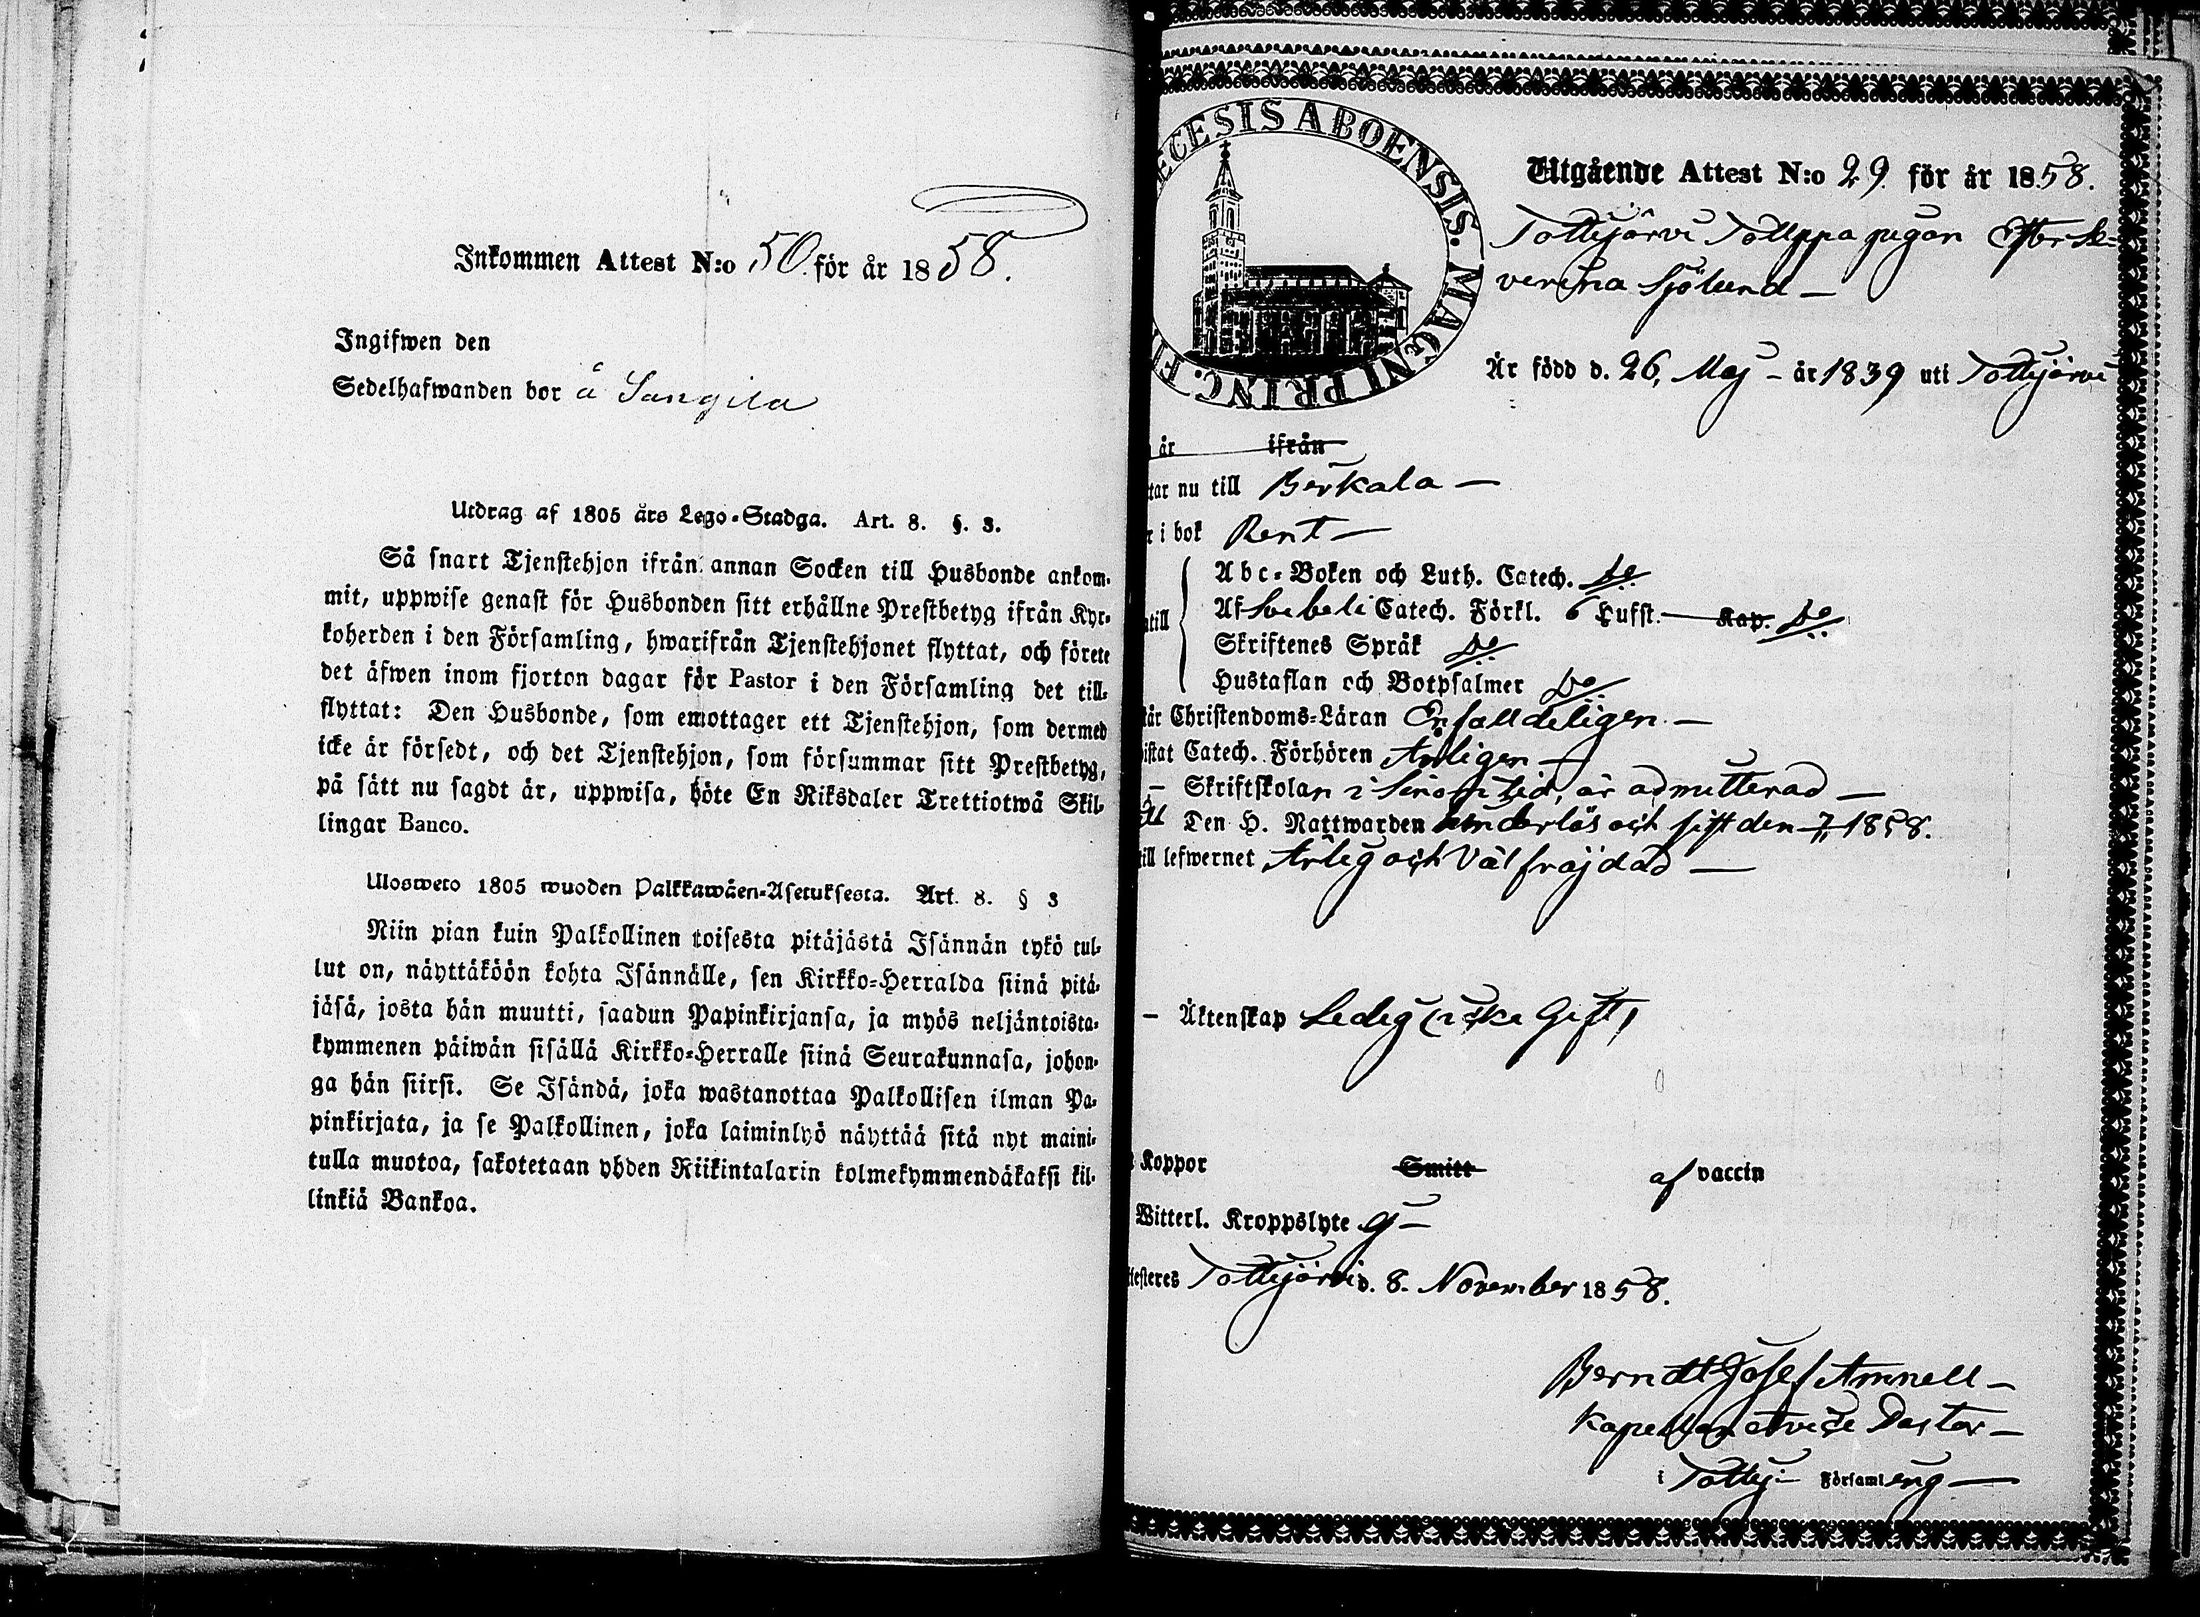 Inkommen Attest N:o 50. för år 1858.
Ingifwen den
Sedelhafwanden bor å Sangila
Utdrag af 1805 års Lego-Stadga. Art. 8. §. 3.
Så snart Tjenstehjon ifrån annan Socken till Husbonde ankom-
mit, uppwise genast för Husbonden sitt erhållne Prestbetyg ifrån Kyr-
koherden i den Församling, hwarifrån Tjenstehjonet flyttat, och förete
det äfwen inom fjorton dagar för Pastor i den Församling det till-
flyttat: Den Husbonde, som emottager ett Tjenstehjon, som dermed
icke är försedt, och det Tjenstehjon, som försummar sitt Prestbetyg,
på sätt nu sagdt är, uppwisa, böte En Riksdaler Trettiotwå Skil-
lingar Banco.
Ulosweto 1805 wuoden Palkkawäen-Asetuksesta. Art. 8. § 3
Niin pian kuin Palkollinen toisesta pitäjästä Isännän tykö tul-
lut on, näyttäköön kohta Isännälle, sen Kirkko-Herralda siinä pitä-
jäsä, josta hän muutti, saadun Papinkirjansa, ja myös neljäntoista-
kymmenen päiwän sisällä Kirkko-Herralle siinä Seurakunnasa, johon-
ga hän siirsi. Se Isändä, joka wastanottaa Palkollisen ilman Pa-
pinkirjata, ja se Palkollinen, joka laiminlyö näyttää sitä nyt maini-
tulla muotoa, sakotetaan yhden Riikintalarin kolmekymmendäkaksi kil-
linkiä Bankoa.
ECESIS ABOENSIS. MAGNI PRINC. F
Utgående Attest N:o 29. för år 1858.
Tottijärvi pigan Ester Se-
verina Sjölund —
Är född d. 26, Maj — år 1839 uti Tottijärvi
år ifrån
tar nu till Birkala —
i bok Rent —
Abc-Boken och Luth. Catech. Do
till Af Svebeli Catech. Förkl. 6 Lufst. — Kap. Do
Skriftenes Språk Do
Hustaflan och Botpsalmer Do
står Christendoms-Läran Enfalldeligen —
wistat Catech. Förhören Årligen —
— Skriftskolan i sinom tid, är admitterad —
Den H. Nattwarden och sist den 1858.
till lefwernet Ärlig och Väl fräjdad —
— Äktenskap Ledig (icke Gift)
Koppor Smitt af vaccin
Witterl. Kroppslyte Ej —
ttesteres Tottijärvi d. 8. November 1858.
Berndt Josef Amnell —
Kapellan et vice Pastor —
i Tottij: Församling —